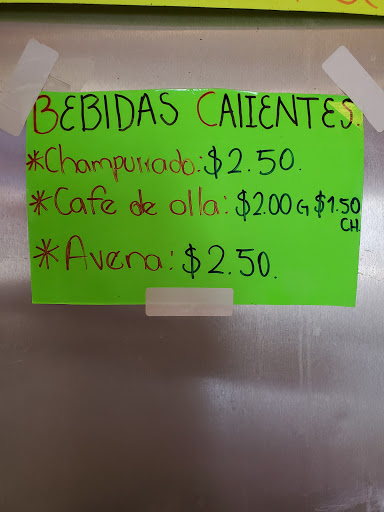 BEBIDAS CALIENTES.
*Champurrado: $2.50.
*Cafe de olla: $2.00 G $1.50
CH.
*Avena: $2.50.